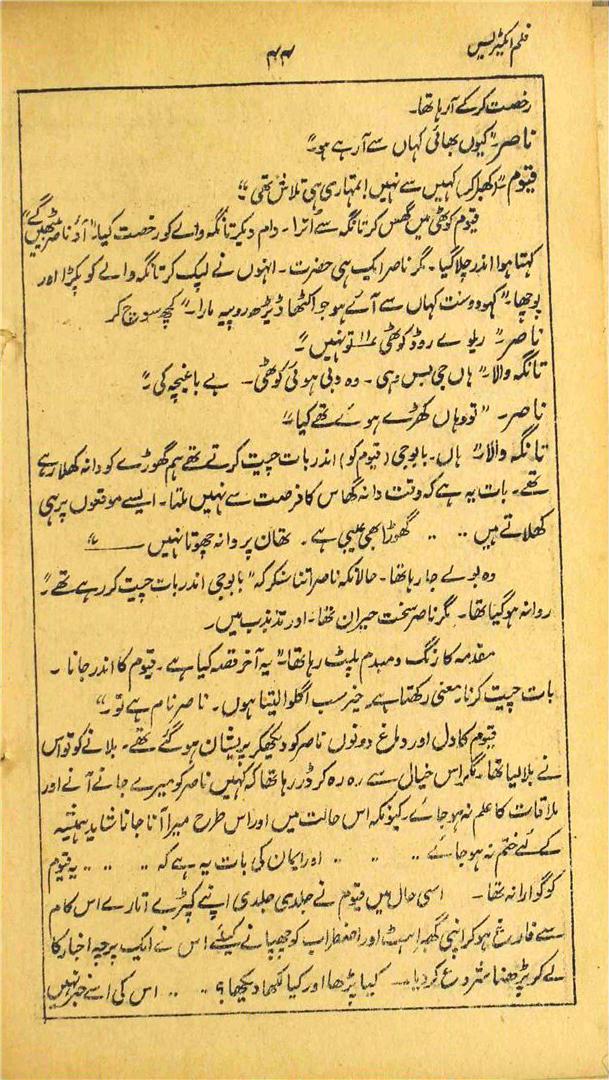 فلم ایکٹریس
۴۴
رخصت کر کے آ رہا تھا۔
ناصر۔ "کیوں بھائی کہاں سے آ رہے ہو۔"
قیوم۔ (گھبرا کر) کہیں سے نہیں! تمہاری ہی تلاش تھی۔"
قیوم کوٹھی میں گھس کر تانگہ سے اُترا۔ دام دیکر تانگہ والے کو رخصت کیا۔ "آؤ ناصر بیٹھیں گے"
کہتا ہوا اندر چلا گیا۔ مگر ناصر ایک ہی حضرت۔ انہوں نے لپک کر تانگہ والے کو پکڑا اور
پوچھا۔ "کہو دوست کہاں سے آئے ہو جو اکٹھا ڈیڑھ روپیہ مارا۔" کچھ سوچ کر
ناصر۔ "ریلوے روڈ کوٹھی ۱۱ تو نہیں۔"
تانگہ والا۔ "ہاں جی بس وہی۔ وہ دبی ہوئی کوٹھی۔ بے باغیچہ کی۔"
ناصر۔ "تو وہاں کھڑے ہوئے تھے کیا۔"
تانگہ والا۔ "ہاں۔ بابوجی (قیوم کو) اندر بات چیت کرتے تھے ہم گھوڑے کو دانہ کھلا رہے
تھے۔ بات یہ ہے کہ وقت دانہ گھاس کا فرصت سے نہیں ملتا۔ ایسے موقعوں پر ہی
کھلاتے ہیں ۰۰ ۰۰ گھوڑا بھی عیبی ہے۔ تھان پر دانہ چھوتا نہیں ــــــ"
وہ بولے جا رہا تھا۔ حالانکہ ناصر اتنا سنکر کہ "بابوجی اندر بات چیت کر رہے تھے۔"
روانہ ہو گیا تھا۔ مگر ناصر سخت حیران تھا۔ اور تذبذب میں۔
مقدمہ کا رنگ دمبدم پلٹ رہا تھا۔ "یہ آخر قصہ کیا ہے۔ قیوم کا اندر جانا۔
بات چیت کرنا۔ معنی رکھتا ہے۔ خیر سب اگلوا لیتا ہوں۔ ناصر نام ہے تو۔"
قیوم کا دل اور دماغ دونوں ناصر کو دیکھکر پریشان ہو گئے تھے۔ بلانے کو تو اس
نے بلا لیا تھا۔ مگر اس خیال سے رہ رہ کر ڈر رہا تھا کہ کہیں ناصر کو میرے جانے آنے اور
ملاقات کا علم نہ ہو جائے۔ کیونکہ اس حالت میں اور اس طرح میرا آنا جانا شاید ہمیشہ
کے لئے ختم نہ ہو جائے ۰۰ ۰۰ ۰۰ ۰۰ اور ایمان کی بات یہ ہے کہ ۰۰ ۰۰ ۰۰ یہ قیوم
کو گوارا نہ تھا۔ اسی حال میں قیوم نے جلدی جلدی اپنے کپڑے اتارے اس کام
سے فارغ ہو کر اپنی گھبراہٹ اور اضطراب کو چھپانے کیلئے اس نے ایک پرچہ اخبار کا
لے کر پڑھنا شروع کر دیا۔ کیا پڑھا اور کیا لکھا دیکھا؟ ۰۰ ۰۰ اس کی اسے خبر نہیں